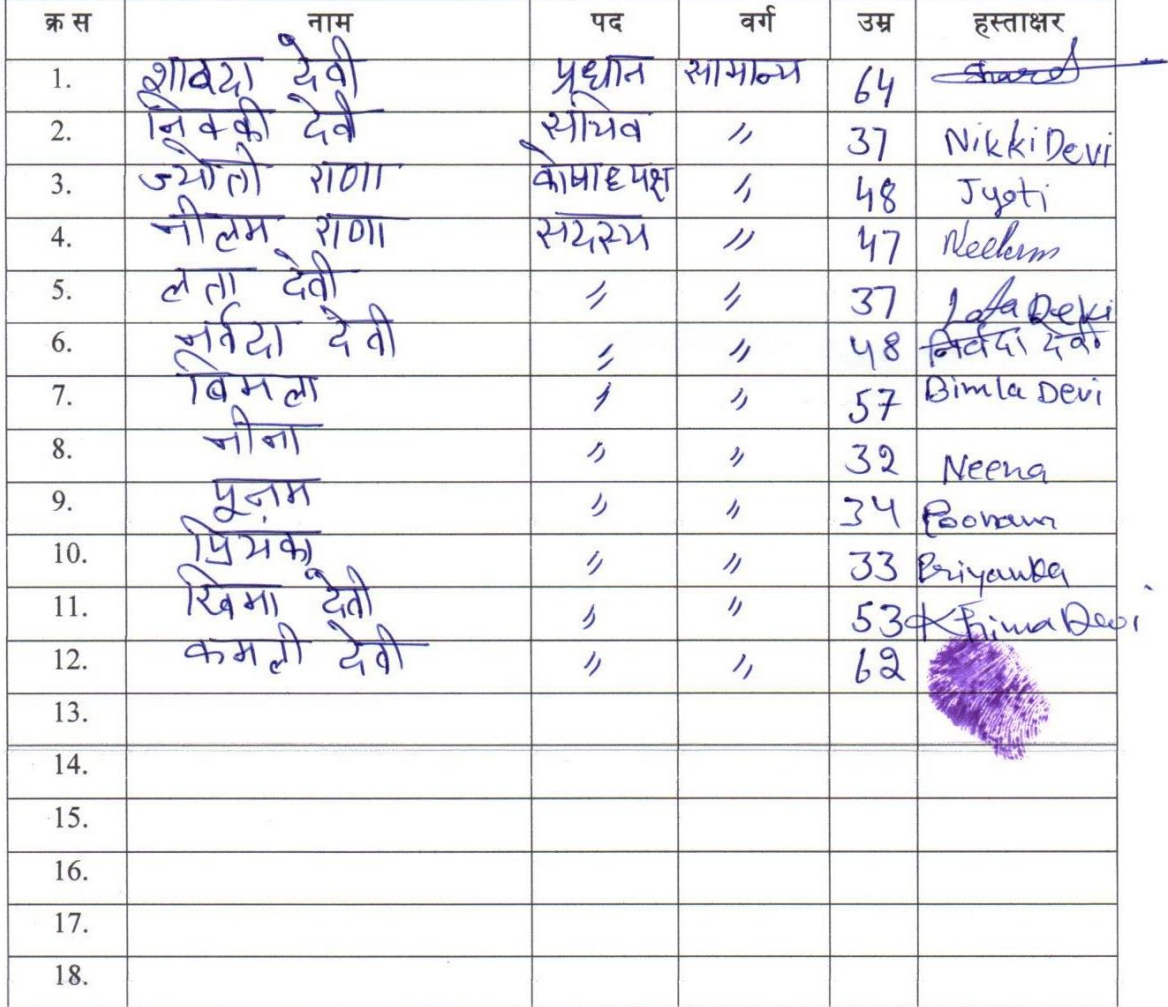 क्र स नाम पद वर्ग उम्र हस्ताक्षर
1. शारदा देवी प्रधान सामान्य 64
2. निक्की देवी सचिव " 37 Nikki Devi
3. ज्योती राणा कोषाध्यक्ष " 48 Jyoti
4. नीलम राणा सदस्य " 47 Neelam
5. लता देवी " " 37 Lata Devi
6. नर्वदा देवी " " 48 निर्वदा देवी
7. बिमला " " 57 Bimla Devi
8. नीना " " 32 Neena
9. पूनम " " 34 Poonam
10. प्रियंका " " 33 Priyanka
11. खिमा देवी " " 53 Khima Devi
12. कमली देवी " " 62
13.
14.
15.
16.
17.
18.